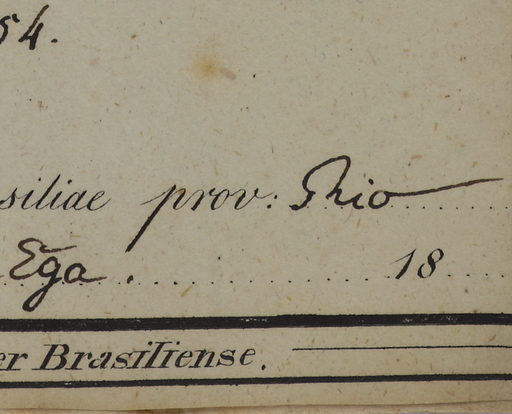 54.
siliae prov: Rio
Ega . 18
er Brasiliense.